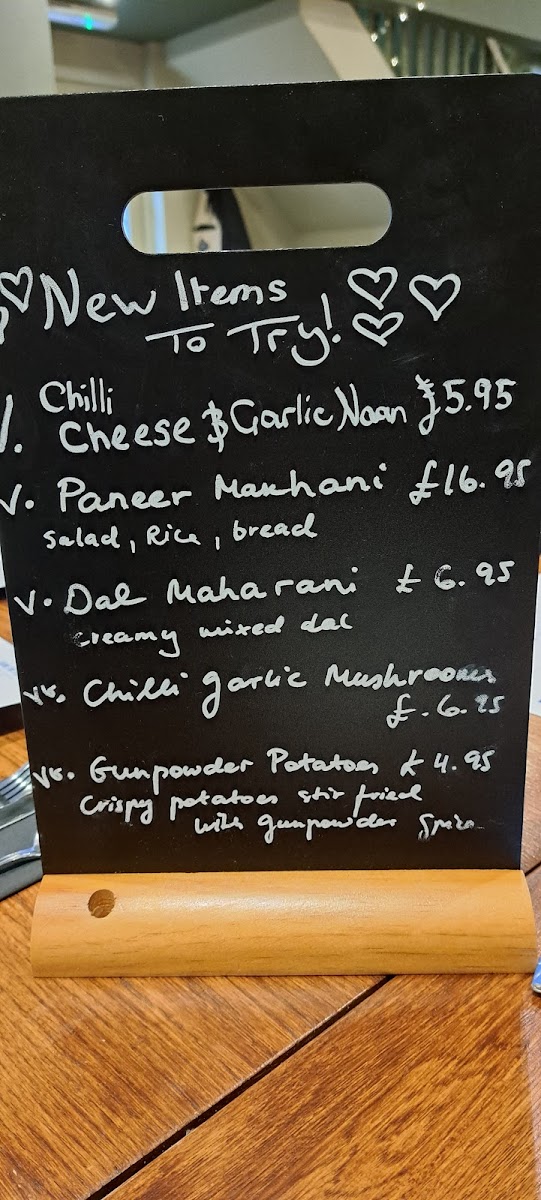 New Items
To Try!
Chilli
V. Cheese & Garlic Naan £5.95
V. Paneer Makhani £16.95
Salad, Rice, bread
V. Dal Maharani £6.95
creamy mixed dal
Chilli garlic Mushrooms
£.6.95
Gunpowder Potatoes £4.95
Crispy potatoes stir fried
with gunpowder